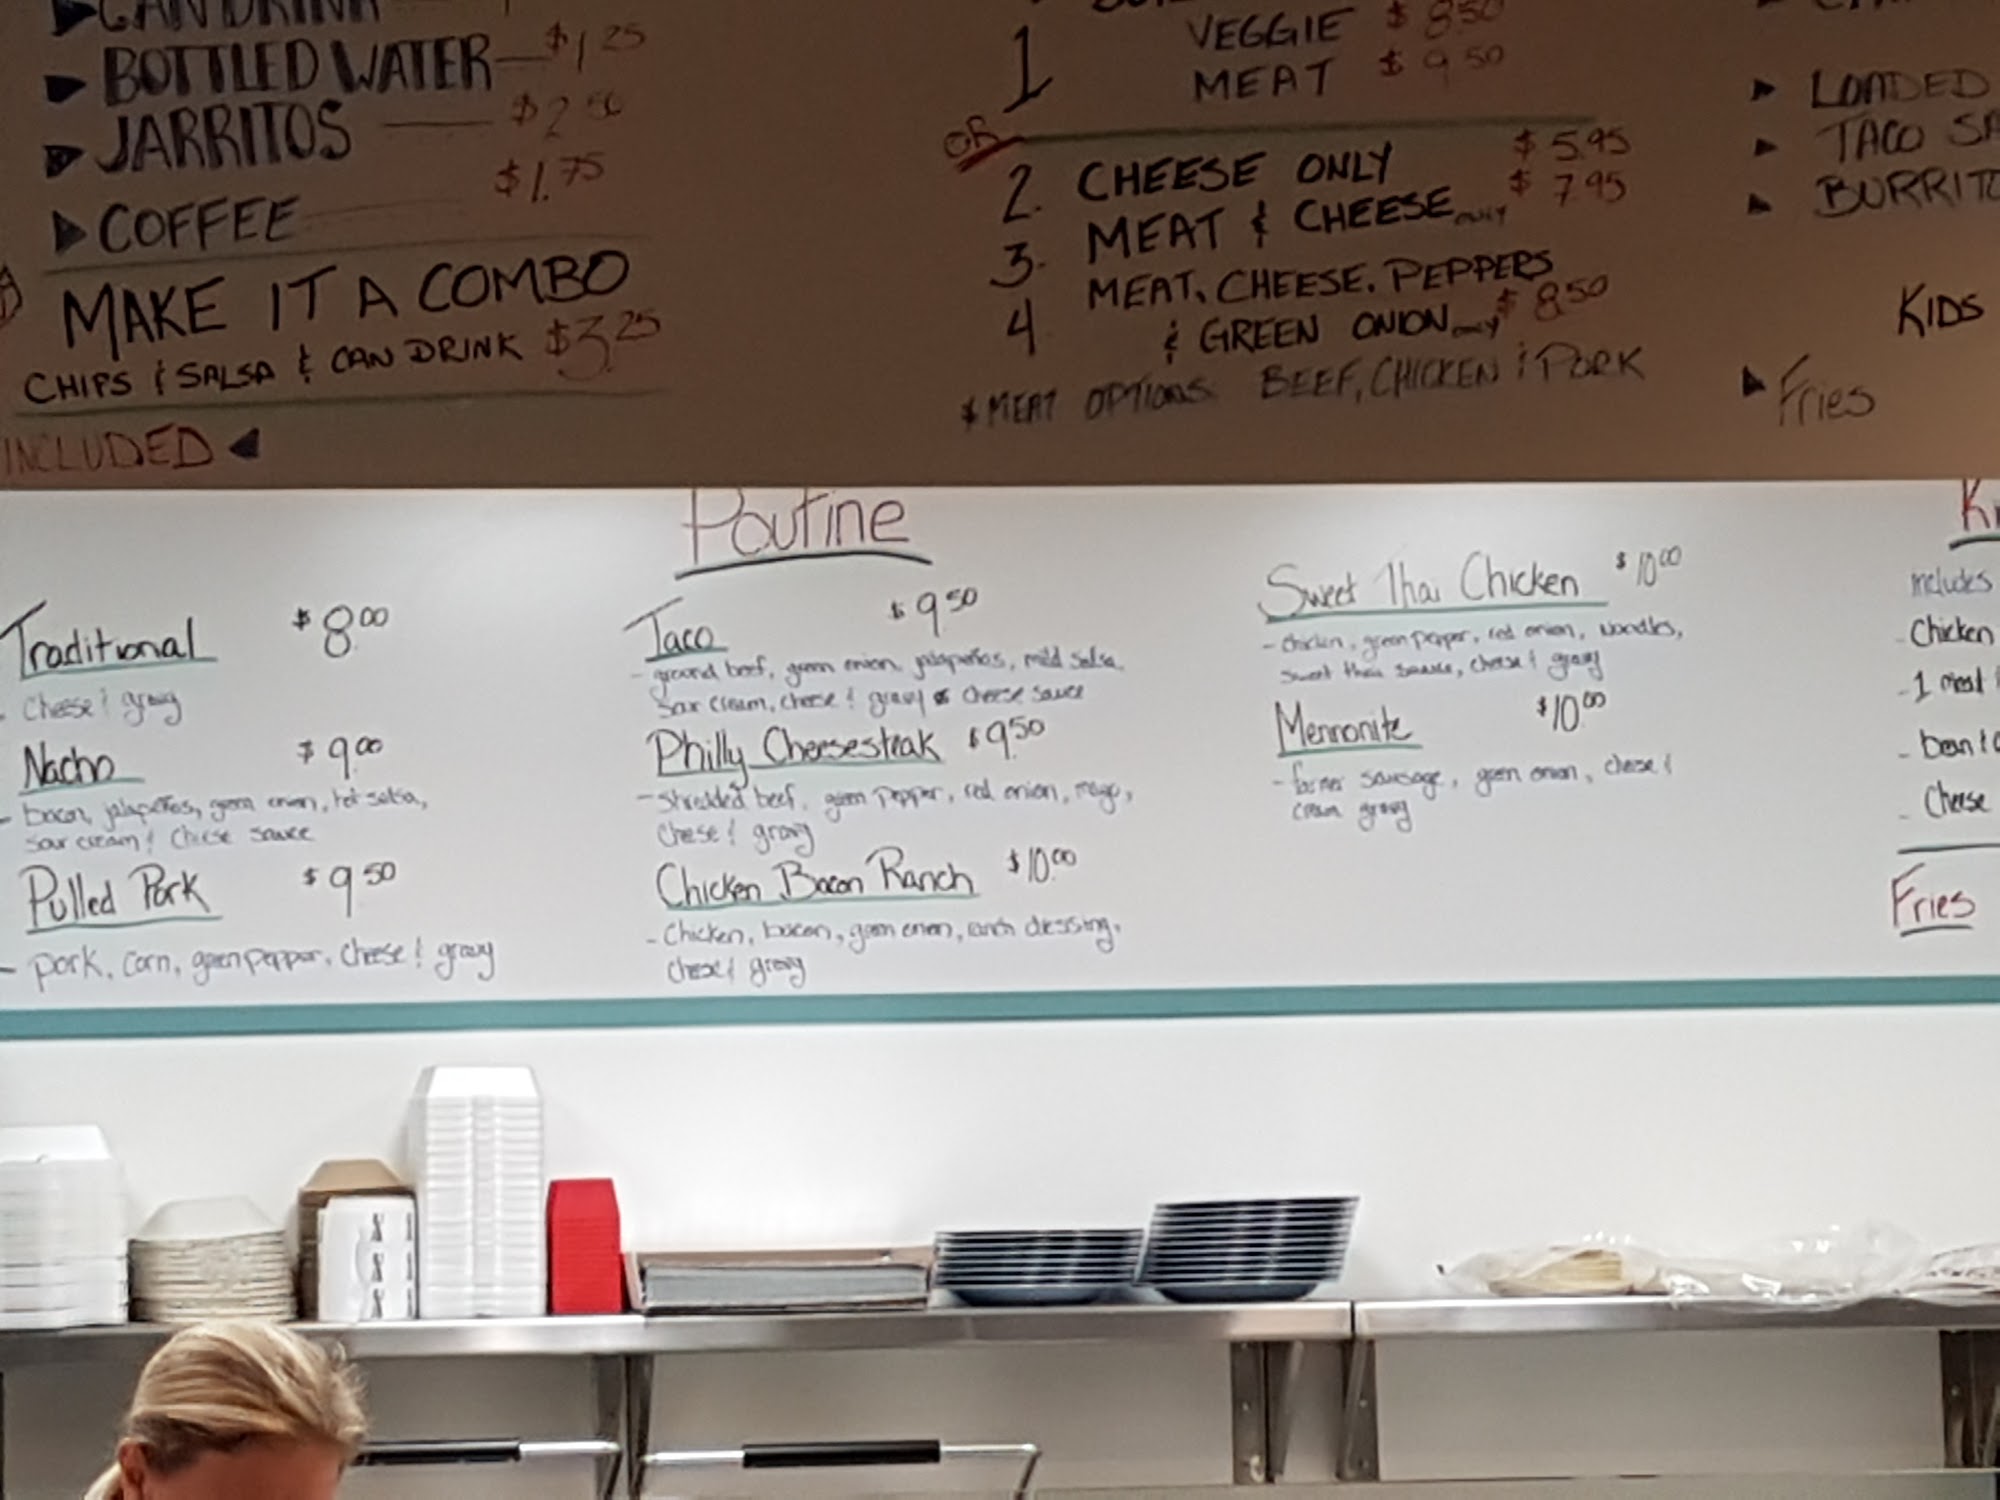 CAN DRINK
► BOTTLED WATER — $1.25
► JARRITOS — $2.50
► COFFEE $1.75
MAKE IT A COMBO
CHIPS & SALSA & CAN DRINK $3.25
INCLUDED ◄
1 VEGGIE $8.50
MEAT $9.50
OR
2. CHEESE ONLY $5.95
3. MEAT & CHEESE ONLY $7.95
4 MEAT, CHEESE, PEPPERS
& GREEN ONION ONLY $8.50
* MEAT OPTIONS: BEEF, CHICKEN & PORK
► LOADED
► TACO SA
► BURRITO
KIDS
► Fries
Poutine
Traditional $8.00
- Cheese & gravy
Nacho $9.00
- bacon, jalapeños, green onion, hot salsa,
sour cream & cheese sauce
Pulled Pork $9.50
- pork, corn, green pepper, cheese & gravy
Taco $9.50
- ground beef, green onion, jalapeños, mild salsa,
sour cream, cheese & gravy or cheese sauce
Philly Cheesesteak $9.50
- shredded beef, green pepper, red onion, mayo,
cheese & gravy
Chicken Bacon Ranch $10.00
- Chicken, bacon, green onion, ranch dressing,
cheese & gravy
Sweet Thai Chicken $10.00
- chicken, green pepper, red onion, noodles,
sweet thai sauce, cheese & gravy
Mennonite $10.00
- farmer sausage, green onion, cheese &
cream gravy
includes
- Chicken
- 1 meat
- bean & c
- Cheese
Fries